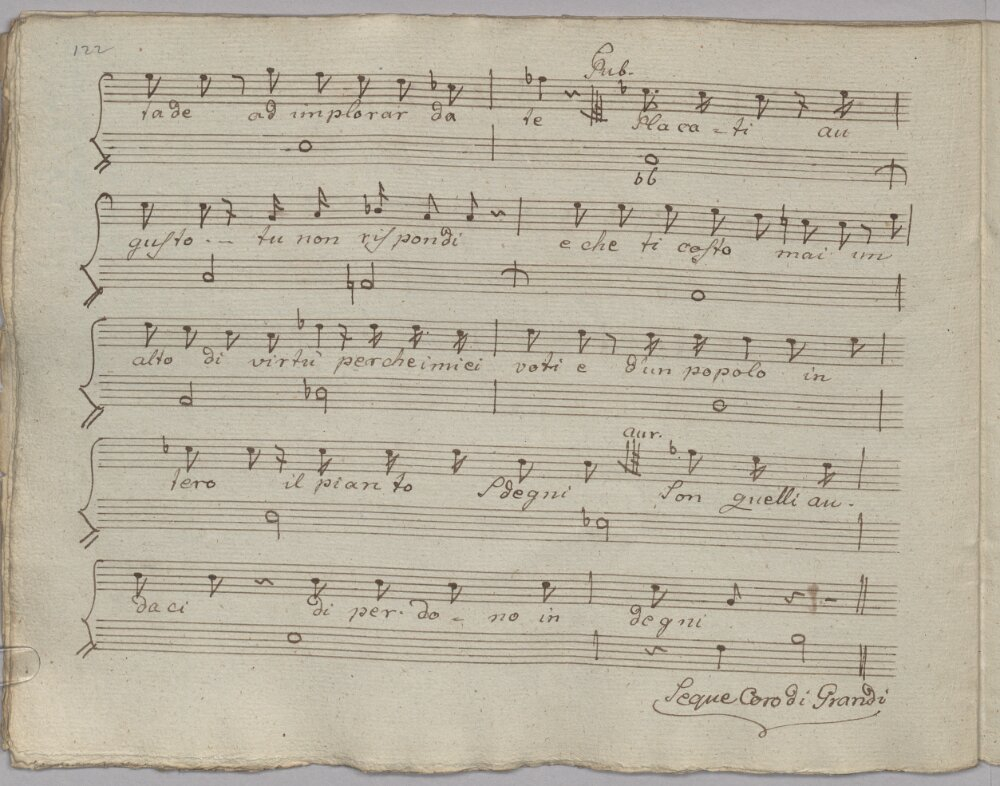 122
Pub.
tade ad implorar da te Placa-ti au
b6
gusto -- tu non rispondi e che ti costo mai un
alto di virtù percheimiei voti e d'un popolo in
aur.
tero il pianto Sdegni Son quelli au-
daci di per-do-no in degni
Seque Coro di Grandi